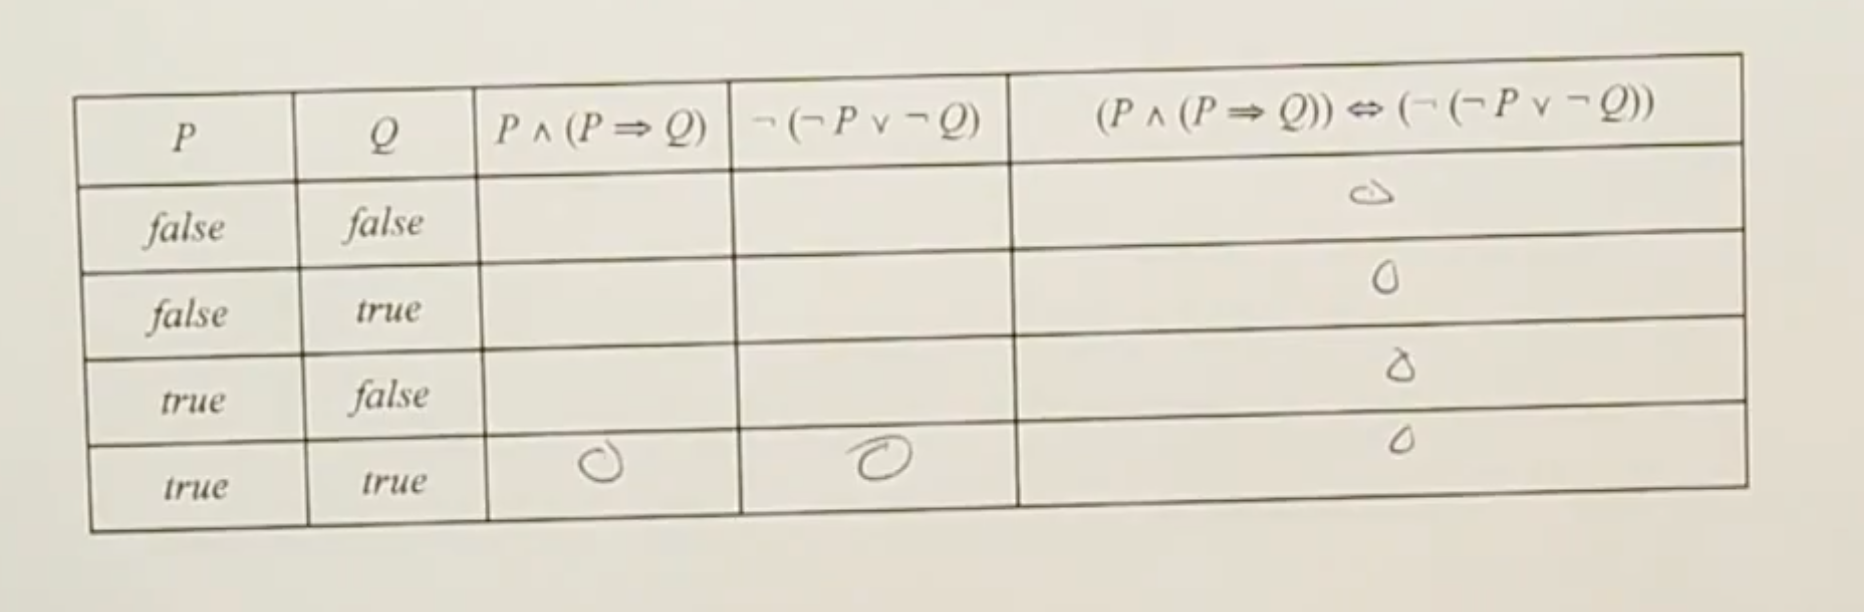 P Q P ∧ (P ⇒ Q) ¬ (¬ P ∨ ¬ Q) (P ∧ (P ⇒ Q)) ⇔ (¬ (¬ P ∨ ¬ Q))
false false O
false true O
true false O
true true O O O